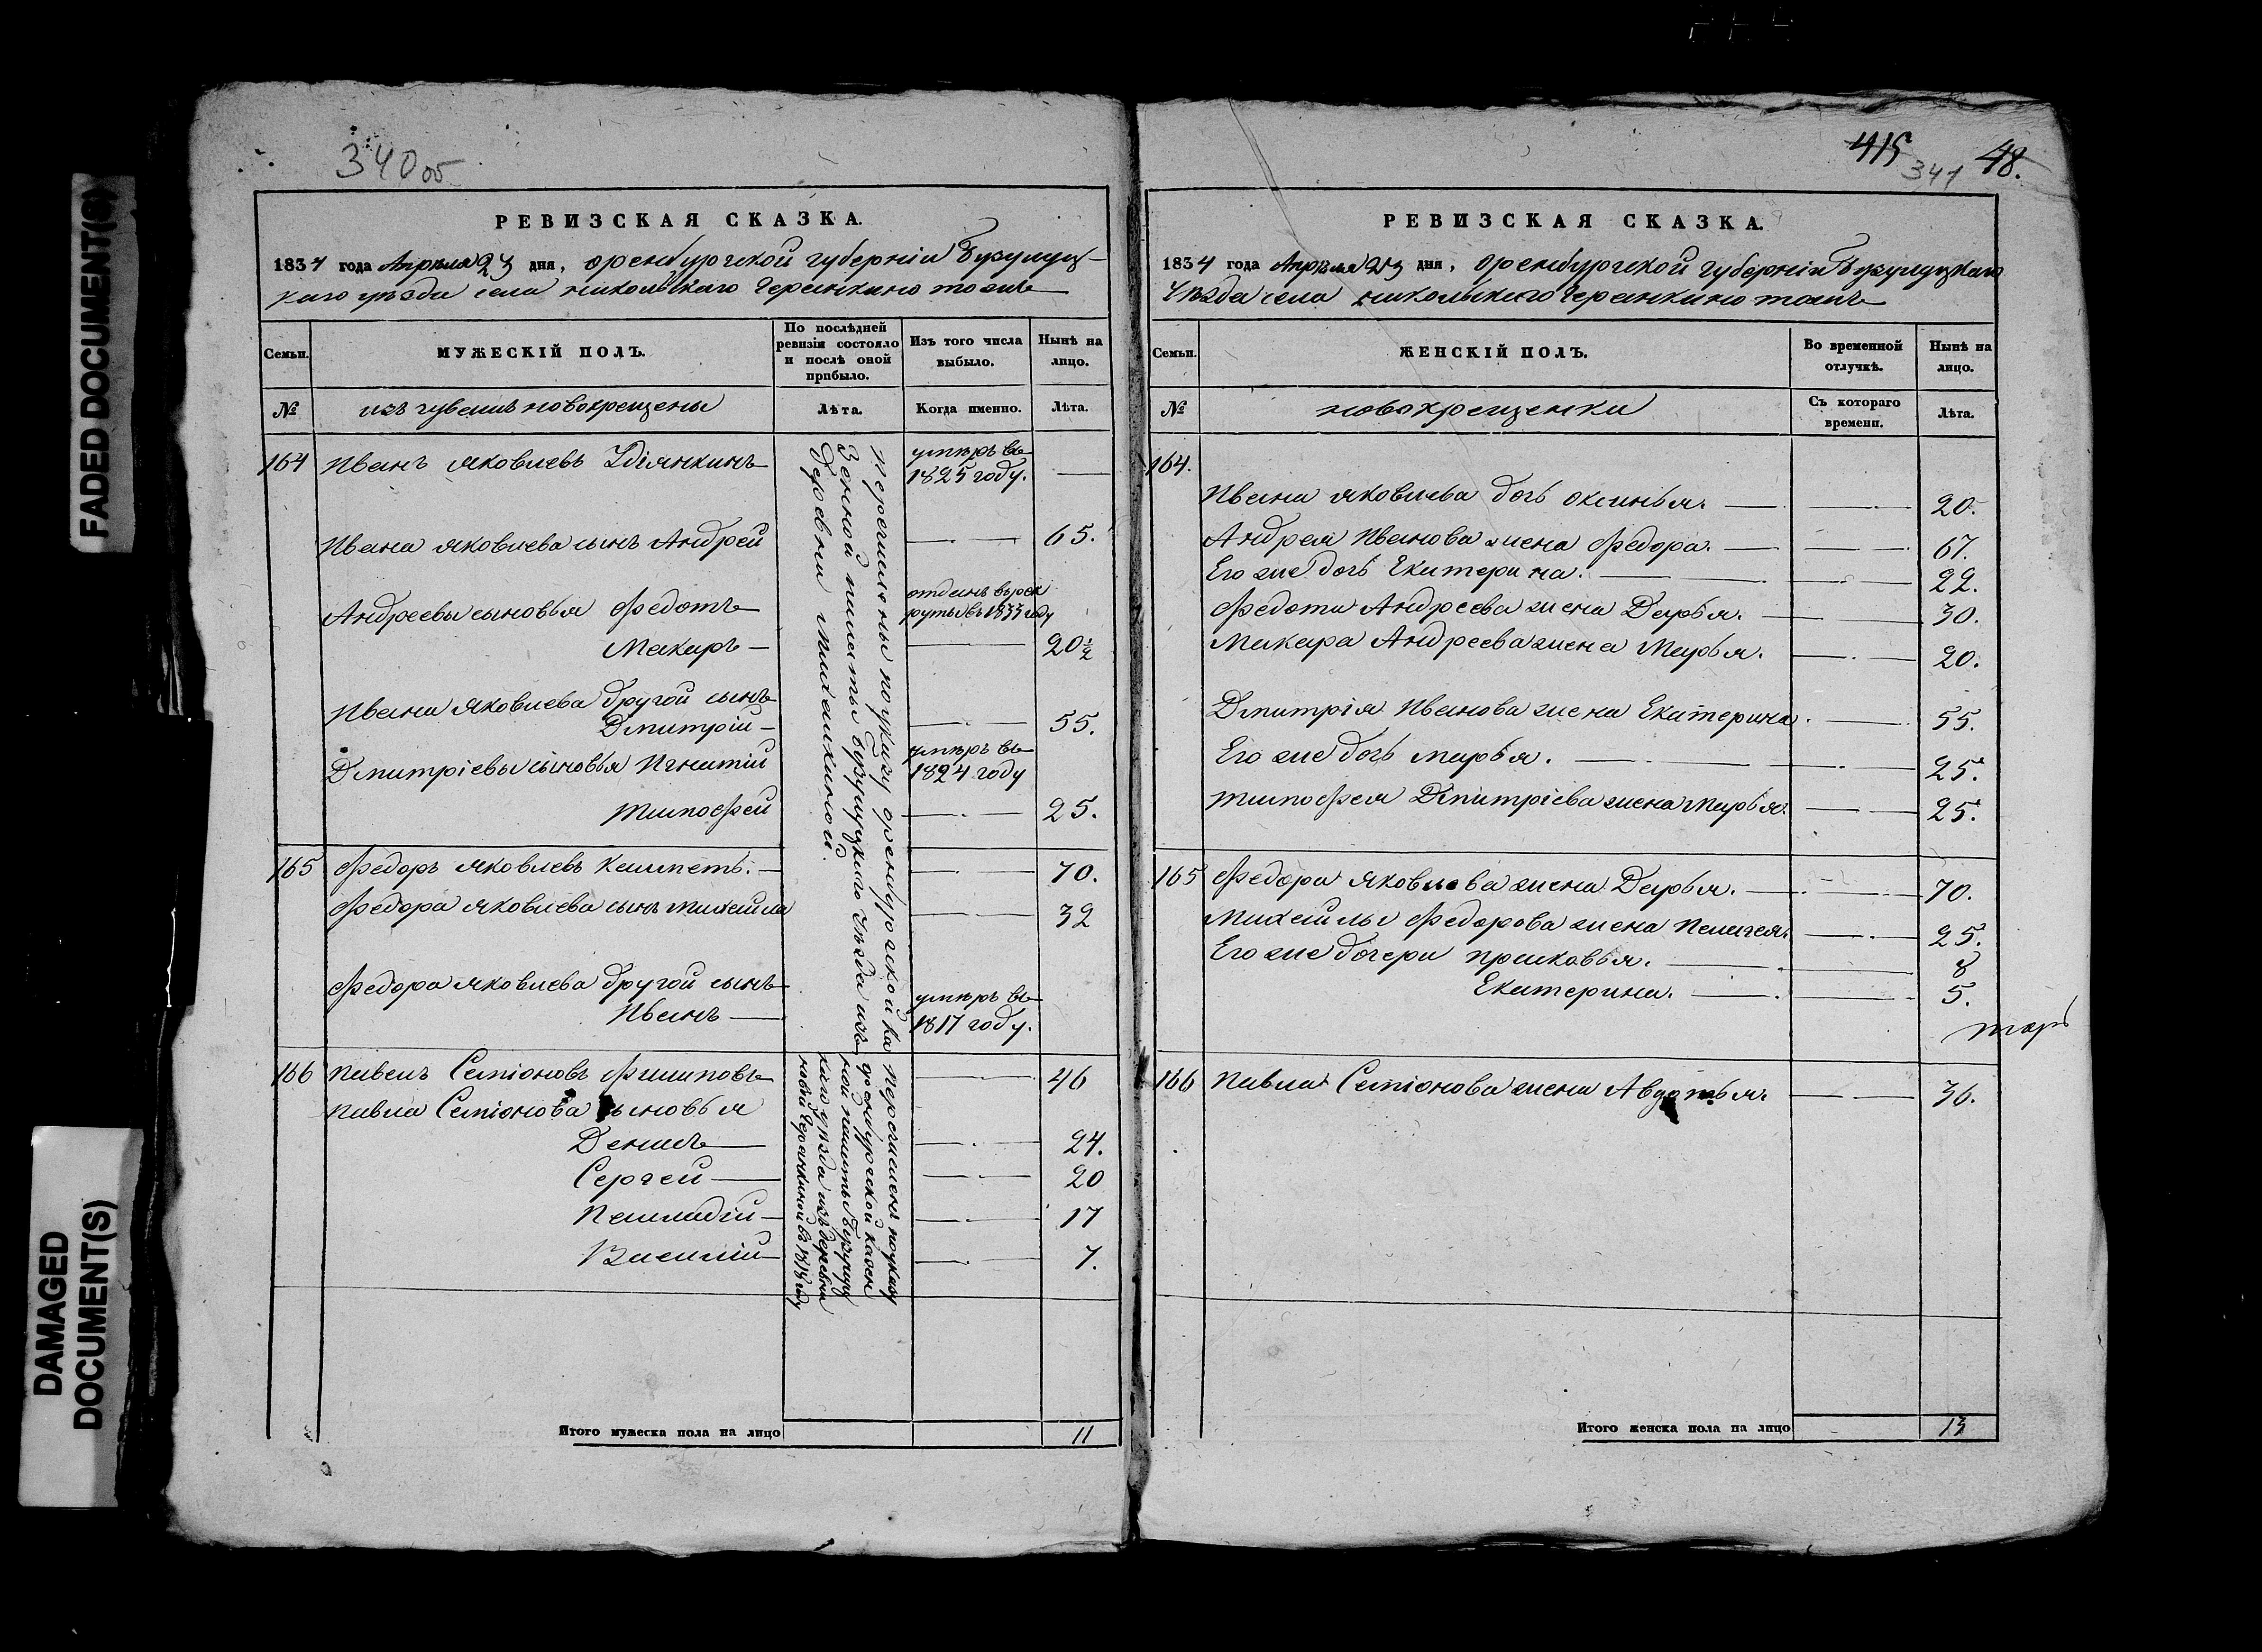 FADED DOCUMENT(S)
DAMAGED
DOCUMENT(S)
340об
РЕВИЗСКАЯ СКАЗКА.
1834 года Апреля 23 дня, оренбургской губернiи Бузулуц-
каго уѣзда села никольскаго Черанкино тожъ
Семьи.
МУЖЕСКIЙ ПОЛЪ.
По послѣдней
ревизiи состояло
и послѣ оной
прибыло.
Изъ того числа
выбыло.
Нынѣ на
лицо.
№
изъ чувашъ новокрещены
Лѣта.
Когда именно.
Лѣта.
164 Иванъ яковлевъ умѣръ въ
1825 году.
Ивана яковлева сынъ Андрей 65.
Андреевы сыновья Федотъ отданъ въ рек
руты въ 1833 году
Макаръ 20½
Ивана яковлева другой сынъ
Дмитрiй 55.
Дмитрiевы сыновья Игнатiй умѣръ въ
1824 году
тимофей 25.
165 Федоръ яковлевъ 70.
Федора яковлева сынъ михайла 32
Федора яковлева другой сынъ
Иванъ умѣръ въ
1817 году.
166 павелъ Семiоновъ Филиповъ 46
павла Семiонова сыновья
Денисъ 24.
Сергей 20
Геннадiй 17
Василiй 7.
перечислены по указу оренбургской ка
зенной палаты Бузулуцкаго уѣзда изъ
деревни
перечислены по указу
оренбургской казен
ной палаты Бузулуц
каго уѣзда изъ деревни
новой Черанкиной въ году
Итого мужеска пола на лицо 11
415 341 48.
РЕВИЗСКАЯ СКАЗКА.
1834 года Апреля 23 дня, оренбургской губернiи Бузулуцкаго
уѣзда села никольскаго Черанкино тожъ
Семьи.
ЖЕНСКIЙ ПОЛЪ.
Во временной
отлучкѣ.
Нынѣ на
лицо.
№
новокрещенки
Съ котораго
времени.
Лѣта.
164.
Ивана яковлева дочь оксинья. 20.
Андрея Иванова жена Федора. 67.
Его же дочь Екатерина. 22.
Федота Андреева жена Дарья. 30.
Макара Андреева жена Марья. 20.
Дмитрiя Иванова жена Екатерина. 55.
Его же дочь марья. 25.
тимофея Дмитрiева жена марья. 25.
165 Федора яковлева жена Дарья. 70.
михайлы Федорова жена Пелагея. 25.
Его же дочери прасковья. 8
Екатерина. 5.
166 павла Семiонова жена Авдотья. 36.
Итого женска пола на лицо 13